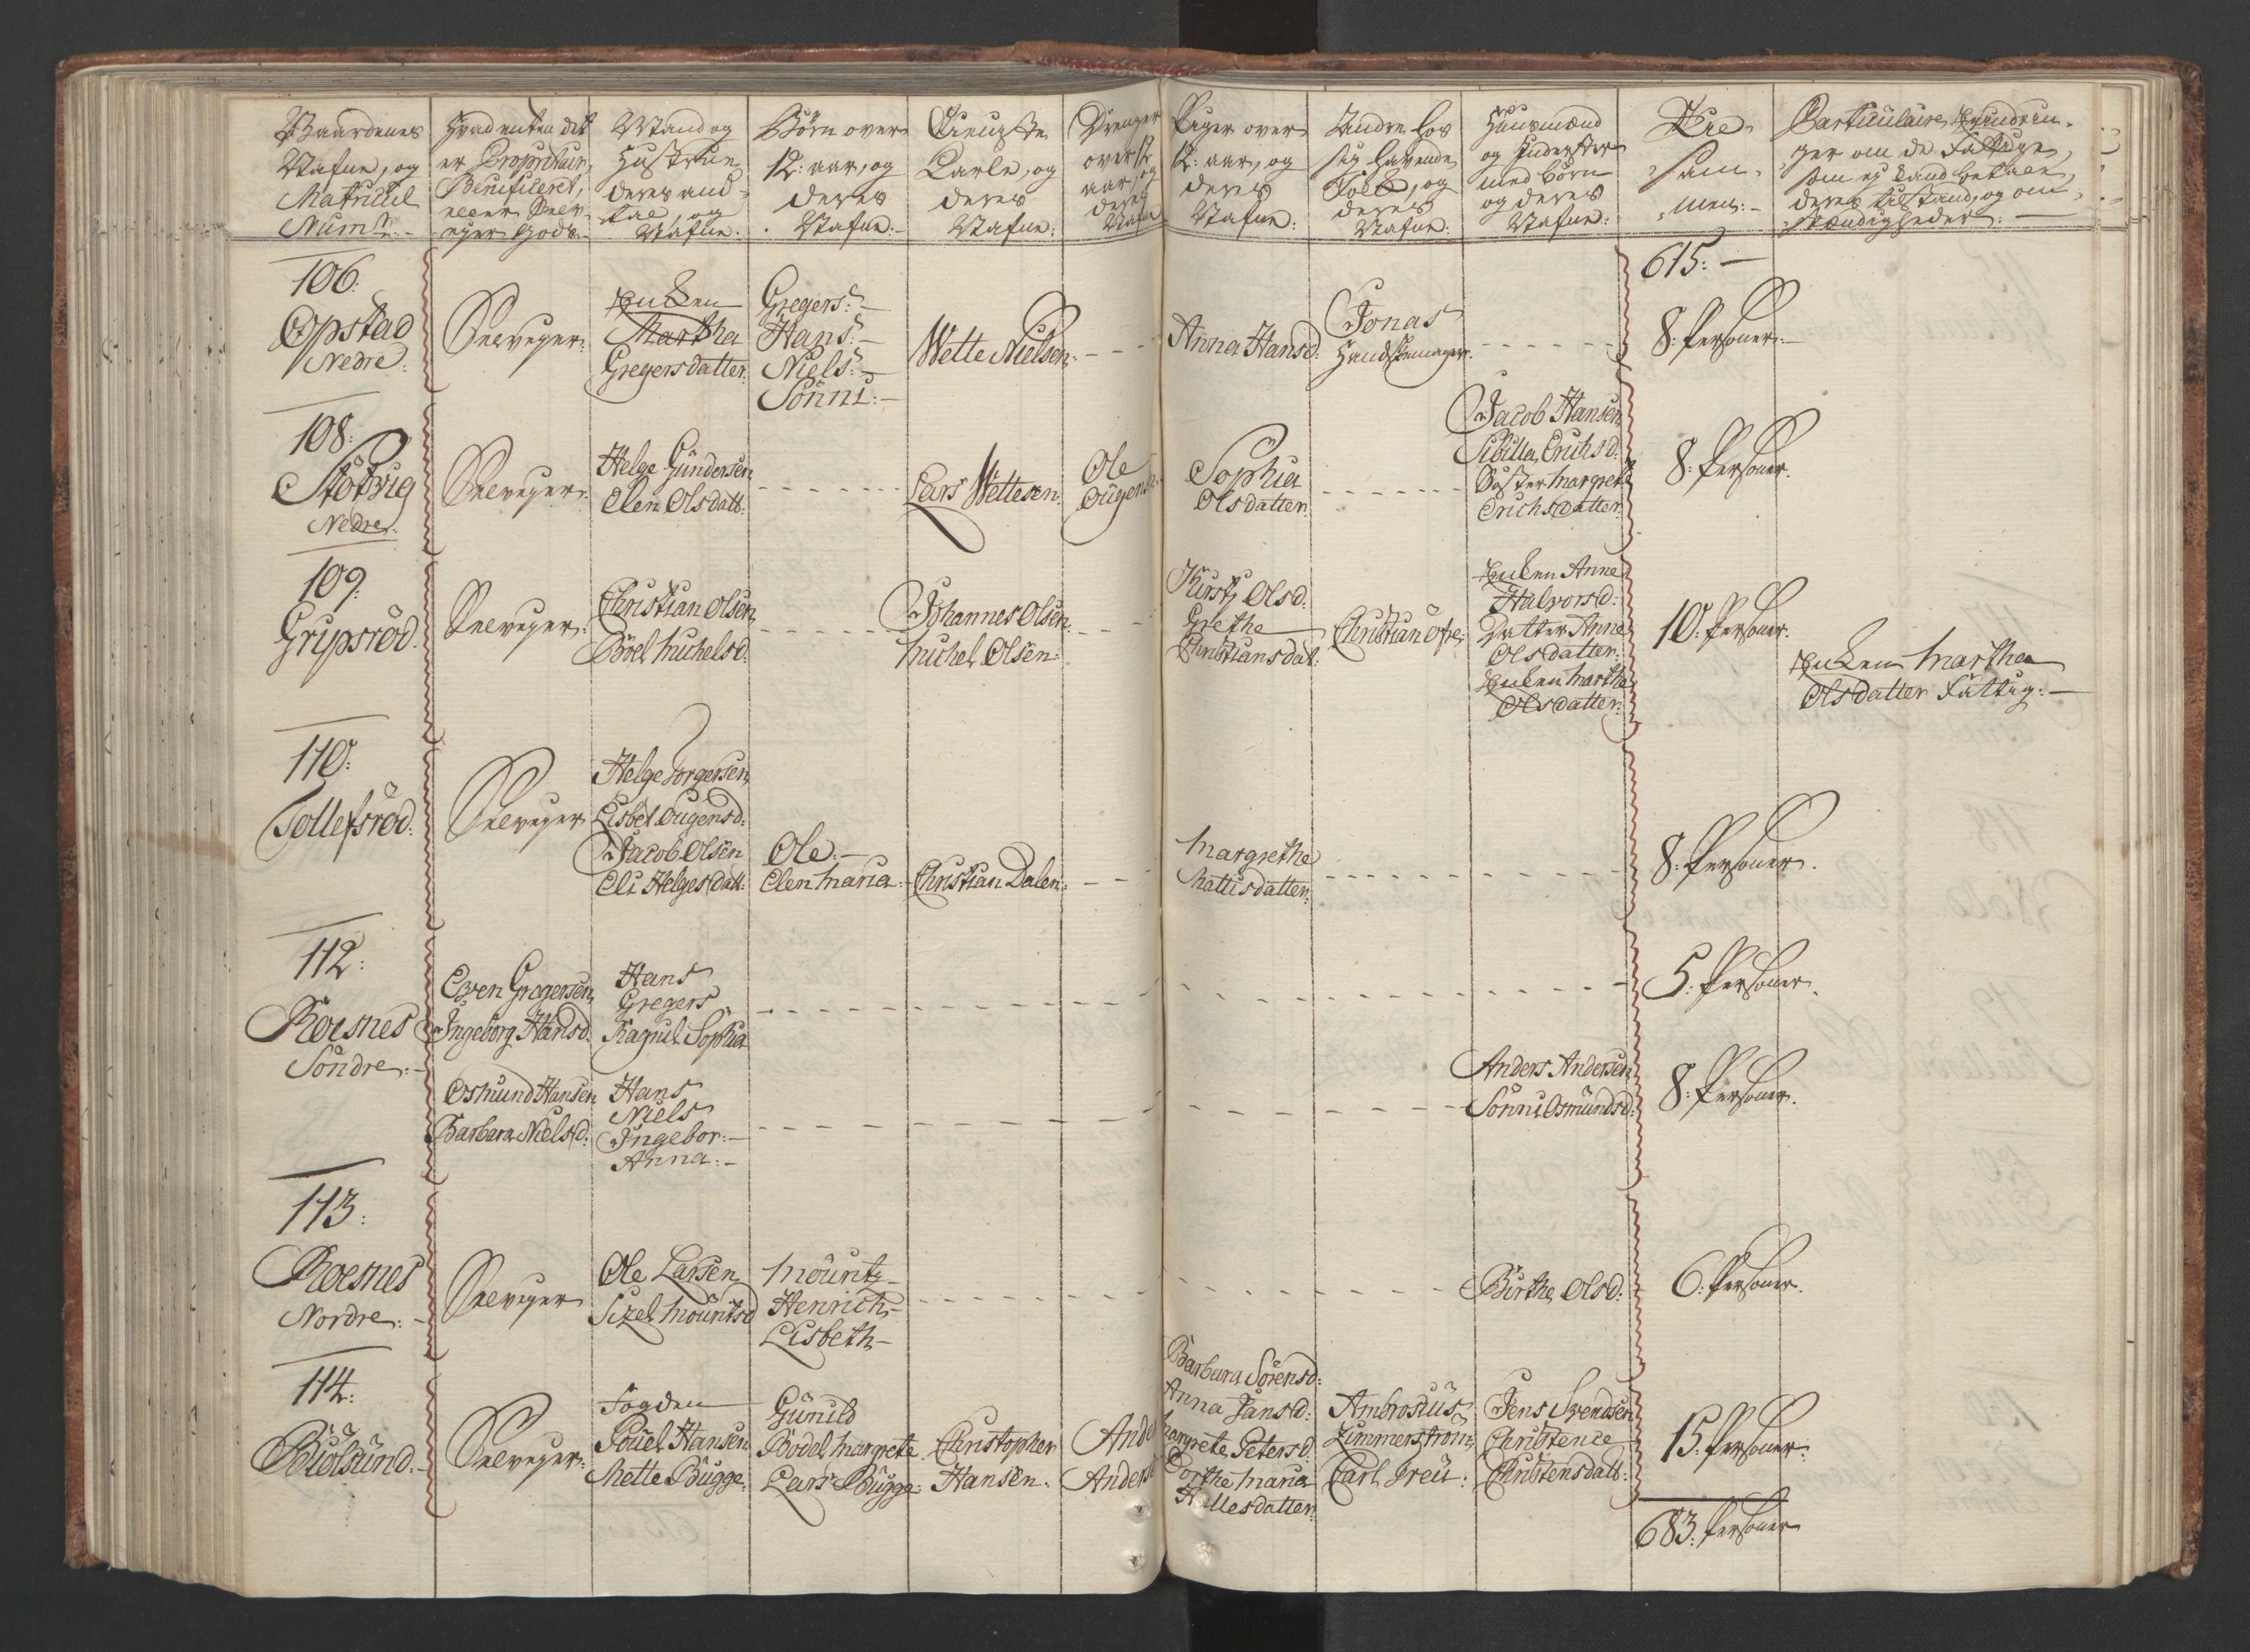 Gaardenes
Nafne, og
Matricul
Num:
Hvad enten det
er Proprietair,
Beneficeret,
eller Selv-
ejer Gods.
Mand og
Hustrue
deres and-
tal, og
Nafne.
Børn over
12: aar, og
deres
Nafne.
Tieniste
Karle, og
deres
Nafne:
Drenger
over 12
aar, og
deres
Nafne
Piger over
12: aar, og
deres
Nafne:
Andre hos
sig havende
Folk, og
deres
Nafne:
Huusmænd
og Inderster
med børn
og deres
Nafne:
Til-
sam-
men:
Particulaire
ger om de Fattige,
som ej kand betale,
deres tilstand, og om-
stændigheder:
615:
106:
Opstad
Nedre:
Selveyer:
Enken
Martha
Gregersdatter:
Gregers:
Hans:
Niels:
Sönni:
Wette Nielsen:
Anna Hansd:
Jonas
Handskemager:
8: Personer:
108:
Stötvig
Nedre:
Selveyer:
Helge Gundersen
Elen Olsdatt:
Lars Wettesen
Ole
Sophia
Olsdatter:
Jacob Hansen
Sibilla Erichsd:
Söster Margrete
Erichsdatter:
8: Personer.
109:
Gripsröd
Selveyer:
Christian Olsen
Böel Michelsd:
Johannes Olsen
Michel Olsen:
Kirsty Olsd:
Grethe
Christiansdat:
Enken Anne
Halvorsd:
Datter Anne
Olsdatter:
Enken Marthe
Olsdatter:
10: Personer.
Enken Martha
Olsdatter Fattig:
110:
Tollefsröd:
Selveyer
Helge Torgersen
Lisbet Ougensd:
Jacob Olsen
Eli Helgesdatt:
Ole:
Elen Maria:
Christian Dalen:
Margrethe
Mattisdatter:
8: Personer.
112:
Röesnes
Söndre:
Even Gregersen
Ingeborg Hansd:
Hans
Gregers
Ragnil Sophia
5: Personer.
Osmund Hansen
Barbara Nielsd:
Hans
Niels
Ingebor:
Anna:
Anders Andersen
Sönni Osmundsd:
8: Personer.
113:
Röesnes
Nordre:
Selveyer
Ole Larsen
Sizel Mouritsd
Mouritz
Henrich
Lisbeth
Birthe Olsd:
6: Personer.
114:
Selveyer:
Fogden
Pouel Hansen
Mette Bugge:
Gunild
Bodel Margrete
Lars Bugge:
Christopher
Hansen:
Barbara Sörensd:
Anna Jansd:
Margrete Petersd:
Dorthe Maria
Hallesdatter:
Ambrosius
Zimmerstrom
Carl Freu:
Jens Svendsen
Christence
Christensdatt:
15: Personer:
683: Personer